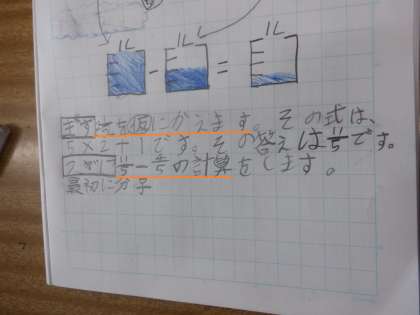 1L 1L 1L
- =
まず 2 1/5を仮にかえます。その式は、
5×2+1です。その答えは11/5です。
つぎに 11/5-4/5の計算をします。
最初に分子